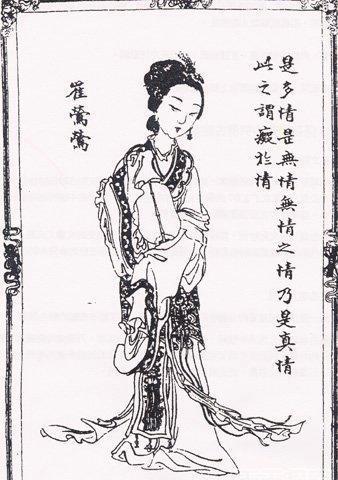 是多情是無情無情之情乃是真情
此之謂癡於情
崔鶯鶯